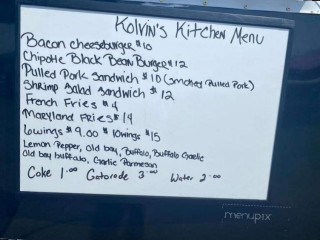 Kolvin's Kitchen Menu
Bacon cheeseburger $10
Chipotle Black Bean Burger $12
Pulled Pork Sandwich $10 (Smokey Pulled Pork)
Shrimp Salad Sandwich $12
French Fries $4
Maryland Fries $14
6wings $9.00 $ 10wings $15
Lemon Pepper, Old bay, Buffalo, Buffalo Garlic
Old bay buffalo, Garlic Parmesan
Coke 1.00 Gatorade 3.00 Water 2.00
menupix